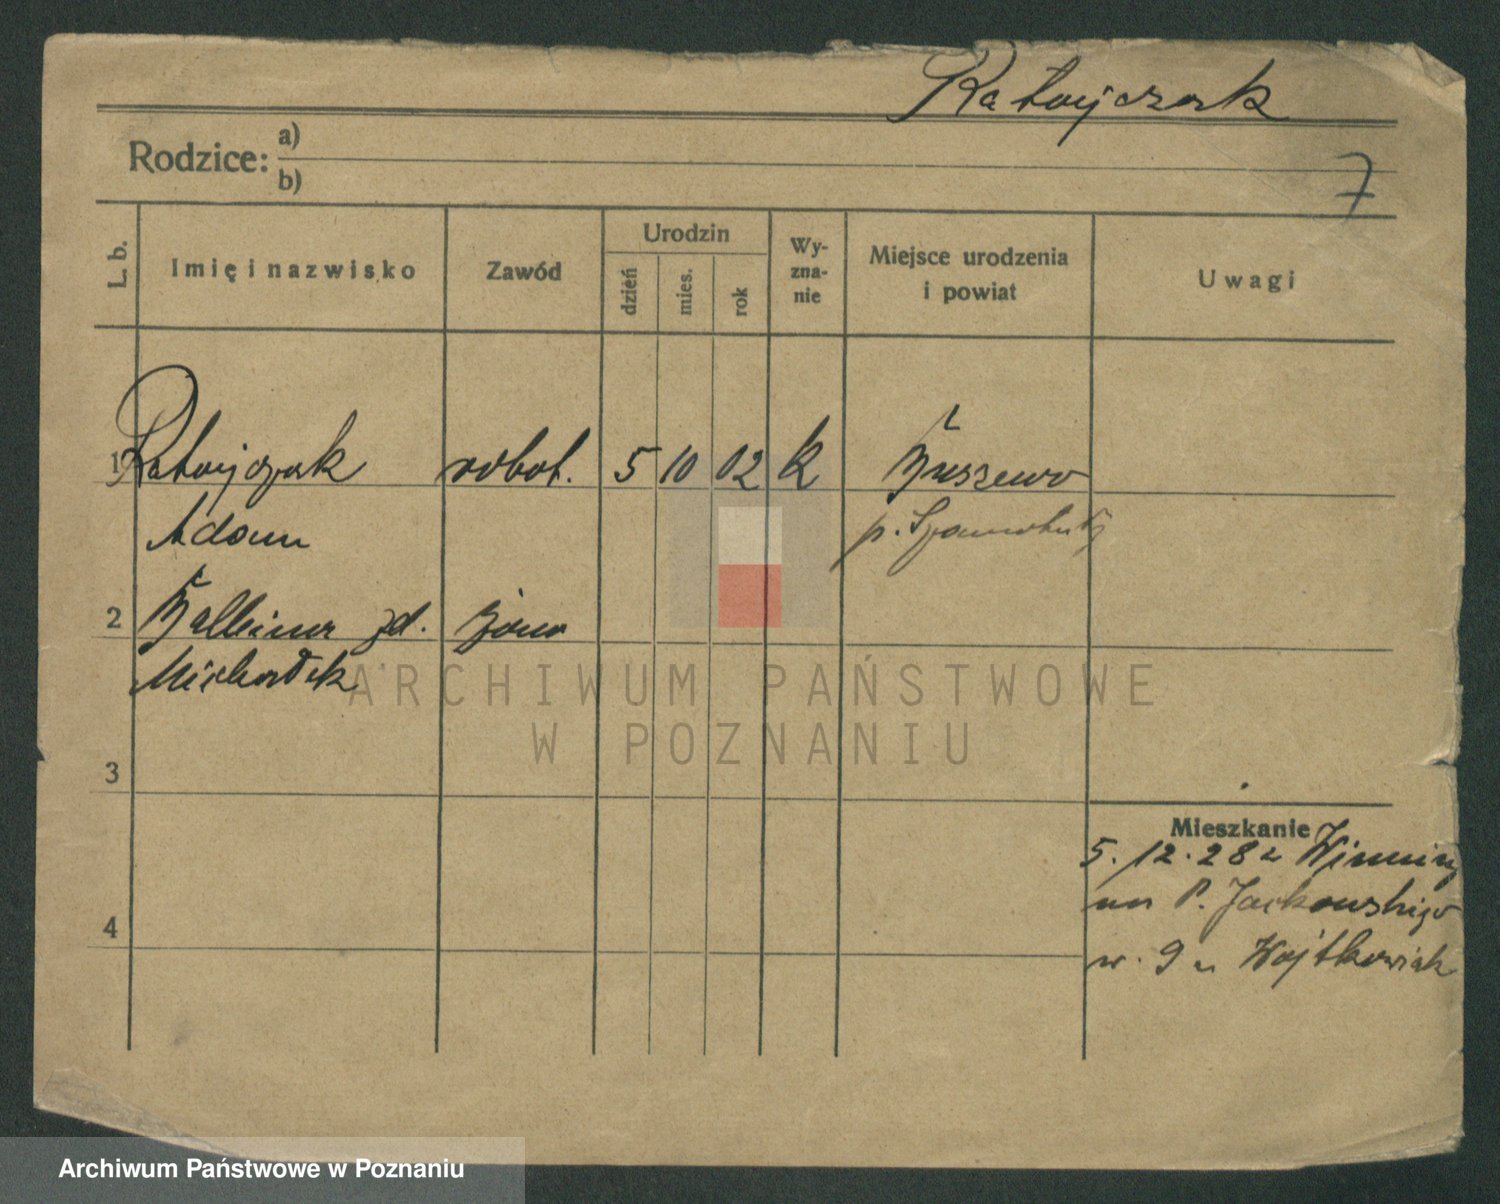 Ratajczak
Rodzice: a)
b)
7
L. b.
Imię i nazwisko
Zawód
Urodzin
dzień
mies.
rok
Wy-
zna-
nie
Miejsce urodzenia
i powiat
Uwagi
1 Ratajczak robot. 5 10 02 k Buszewo
Adam p. Szamotuły
2 Balbina zd. żona
Michałek
3
4
Mieszkanie
5.12.28 z Winiary
P. Jackowskiego
9 u Wojtkowiak
ARCHIWUM PAŃSTWOWE
W POZNANIU
Archiwum Państwowe w Poznaniu